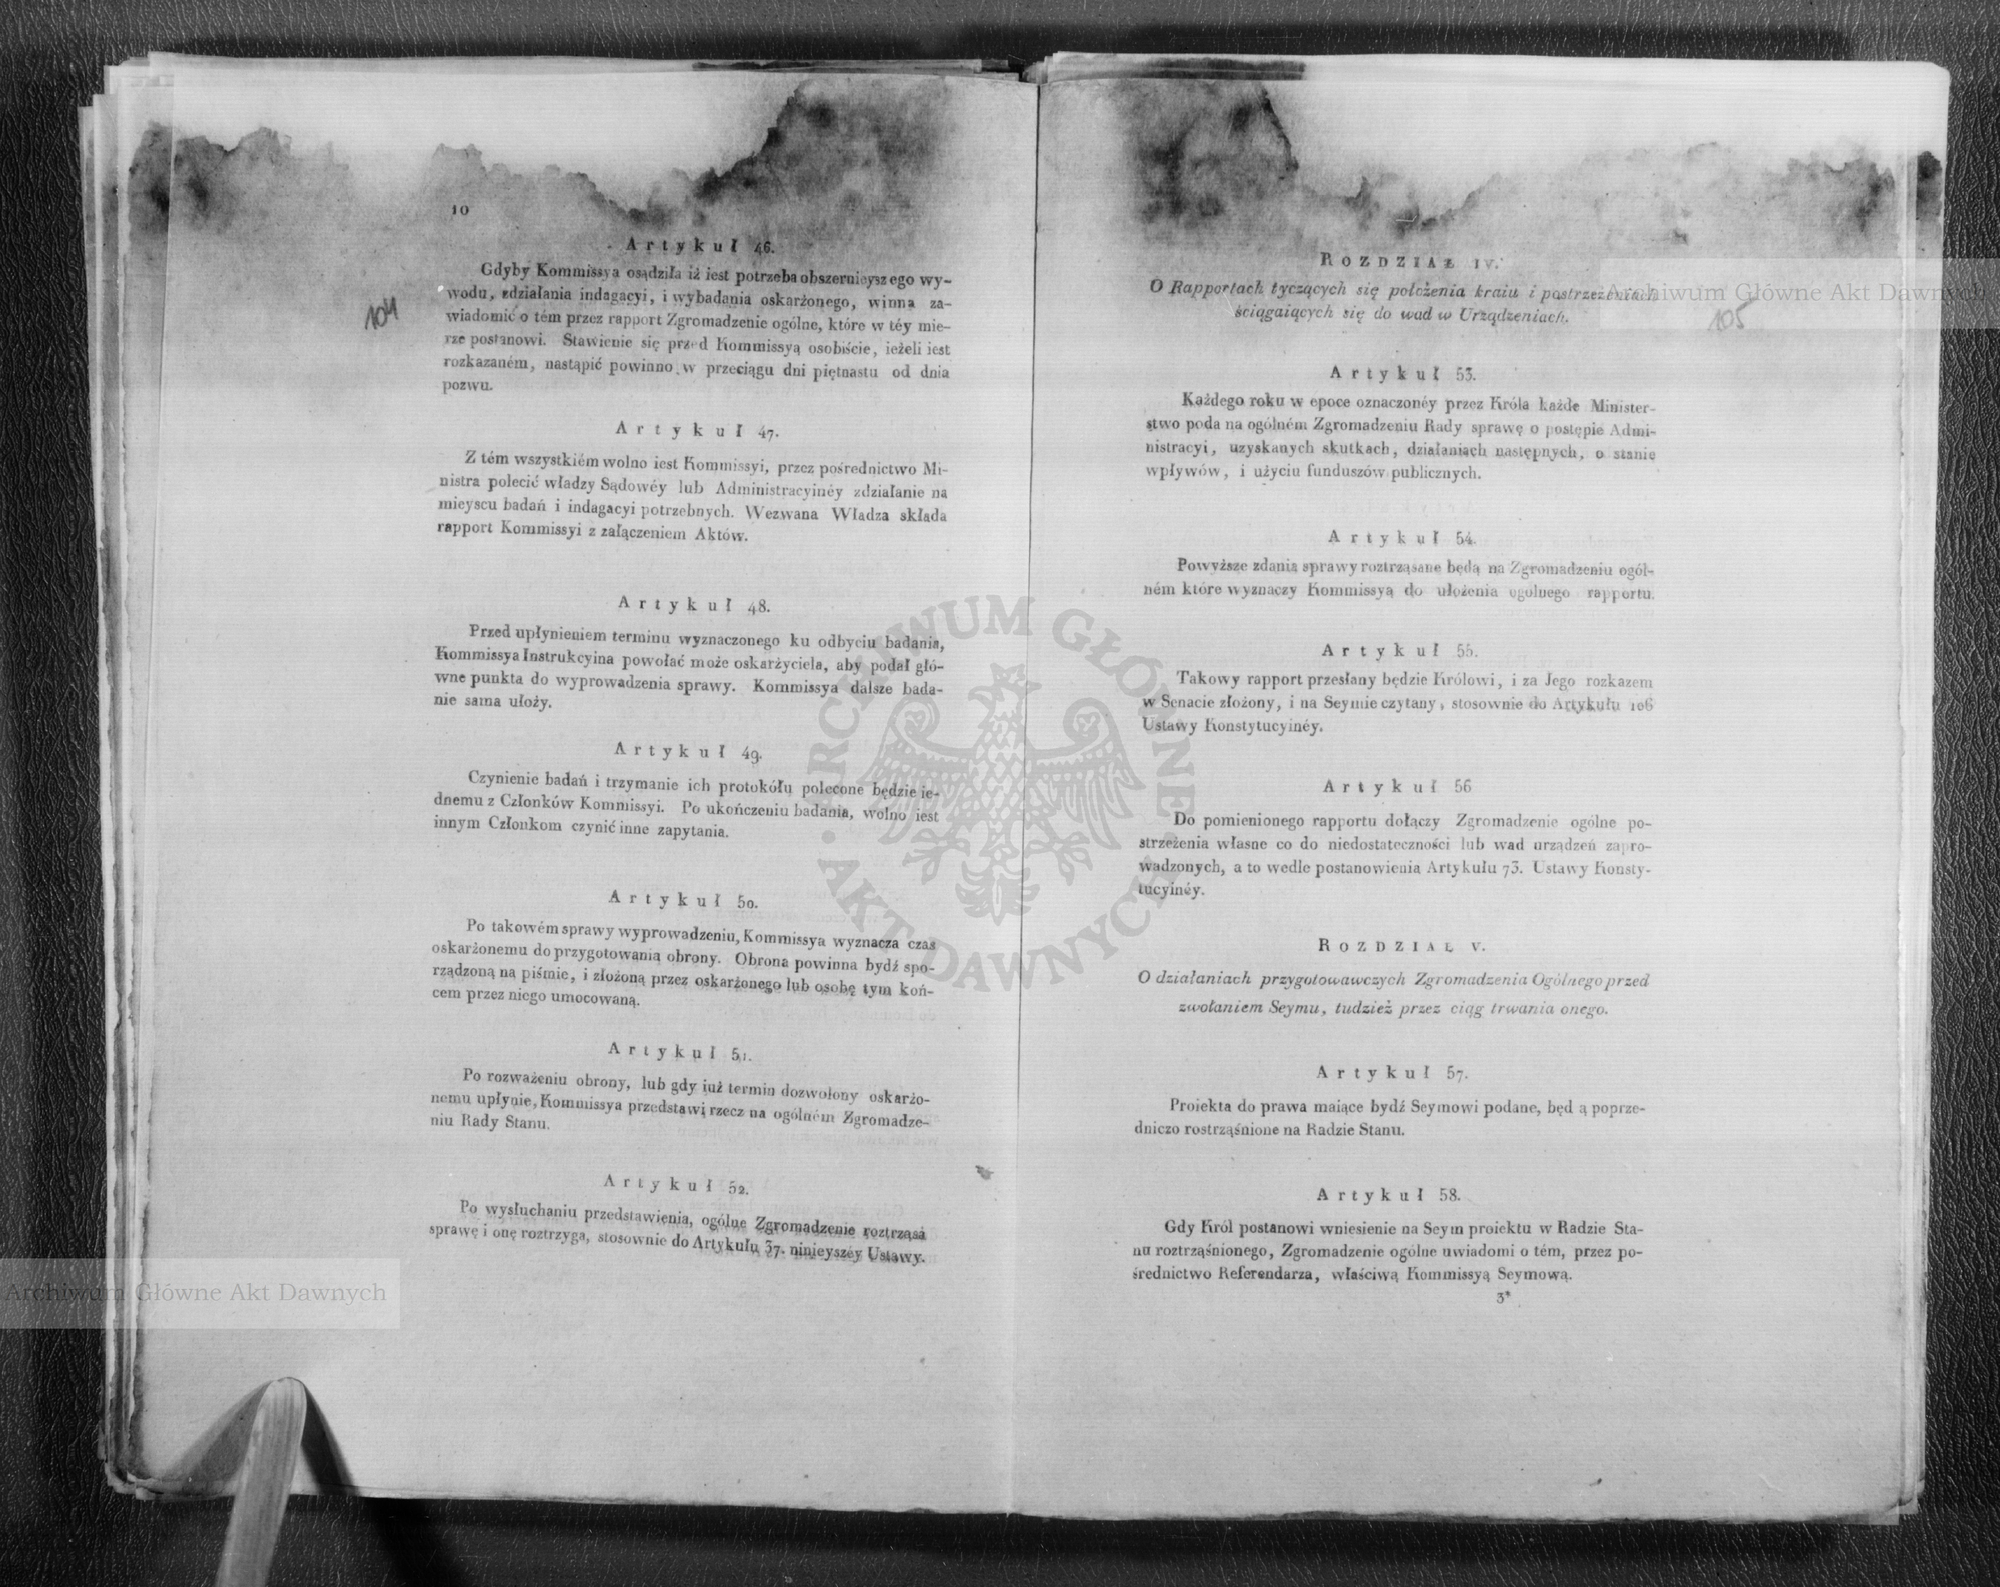 10
Artykuł 46.
Gdyby Kommissya osądziła iż iest potrzeba obszernieyszego wy-
wodu, zdziałania indagacyi, i wybadania oskarżonego, winna za-
wiadomić o tém przez rapport Zgromadzenie ogólne, które w téy mie-
rze postanowi. Stawienie się przed Kommissyą osobiście, ieżeli iest
rozkazaném, nastąpić powinno w przeciągu dni piętnastu od dnia
pozwu.
104
Artykuł 47.
Z tém wszystkiém wolno iest Kommissyi, przez pośrednictwo Mi-
nistra polecić władzy Sądowéy lub Administracyinéy zdziałanie na
mieyscu badań i indagacyi potrzebnych. Wezwana Władza składa
rapport Kommissyi z załączeniem Aktów.
Artykuł 48.
Przed upłynieniem terminu wyznaczonego ku odbyciu badania,
Kommissya Instrukcyina powołać może oskarżyciela, aby podał głó-
wne punkta do wyprowadzenia sprawy. Kommissya dalsze bada-
nie sama ułoży.
Artykuł 49.
Czynienie badań i trzymanie ich protokółu polecone będzie ie-
dnemu z Członków Kommissyi. Po ukończeniu badania, wolno iest
innym Członkom czynić inne zapytania.
Artykuł 50.
Po takowém sprawy wyprowadzeniu, Kommissya wyznacza czas
oskarżonemu do przygotowania obrony. Obrona powinna bydź spo-
rządzoną na piśmie, i złożoną przez oskarżonego lub osobę tym koń-
cem przez niego umocowaną.
Artykuł 51.
Po rozważeniu obrony, lub gdy iuż termin dozwolony oskarżo-
nemu upłynie, Kommissya przedstawi rzecz na ogólném Zgromadze-
niu Rady Stanu.
Artykuł 52.
Po wysłuchaniu przedstawienia, ogólne Zgromadzenie roztrząsa
sprawę i onę roztrzyga, stosownie do Artykułu 37. ninieyszéy Ustawy.
Archiwum Główne Akt Dawnych
ROZDZIAŁ IV.
O Rapportach tyczących się położenia kraiu i postrzeżeniach
ściągaiących się do wad w Urządzeniach.
Archiwum Główne Akt Dawnych
105
Artykuł 53.
Każdego roku w epoce oznaczonéy przez Króla każde Minister-
stwo poda na ogólném Zgromadzeniu Rady sprawę o postępie Admi-
nistracyi, uzyskanych skutkach, działaniach następnych, o stanie
wpływów, i użyciu funduszów publicznych.
Artykuł 54.
Powyższe zdania sprawy roztrząsane będą na Zgromadzeniu ogól-
ném które wyznaczy Kommissyą do ułożenia ogólnego rapportu.
Artykuł 55.
Takowy rapport przesłany będzie Królowi, i za Jego rozkazem
w Senacie złożony, i na Seymie czytany, stosownie do Artykułu 106
Ustawy Konstytucyinéy.
Artykuł 56
Do pomienionego rapportu dołączy Zgromadzenie ogólne po-
strzeżenia własne co do niedostateczności lub wad urządzeń zapro-
wadzonych, a to wedle postanowienia Artykułu 73. Ustawy Konsty-
tucyinéy.
ROZDZIAŁ V.
O działaniach przygotowawczych Zgromadzenia Ogólnego przed
zwołaniem Seymu, tudzież przez ciąg trwania onego.
Artykuł 57.
Proiekta do prawa maiące bydź Seymowi podane, będ ą poprze-
dniczo rostrząśnione na Radzie Stanu.
Artykuł 58.
Gdy Król postanowi wniesienie na Seym proiektu w Radzie Sta-
nu roztrząśnionego, Zgromadzenie ogólne uwiadomi o tém, przez po-
średnictwo Referendarza, właściwą Kommissyą Seymową.
3*
ARCHIWUM GŁÓWNE
· AKT DAWNYCH ·